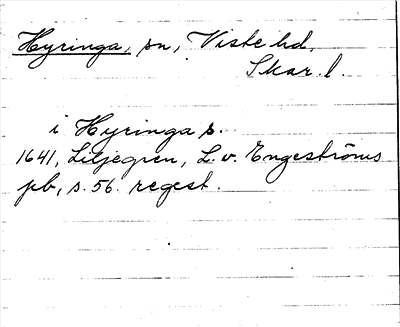 Hyringa, sn, Viste hd.
Skar. l.
i Hyringa s.
1641, Liljegren, L. v. Engeströms
pb, s. 56. regest.